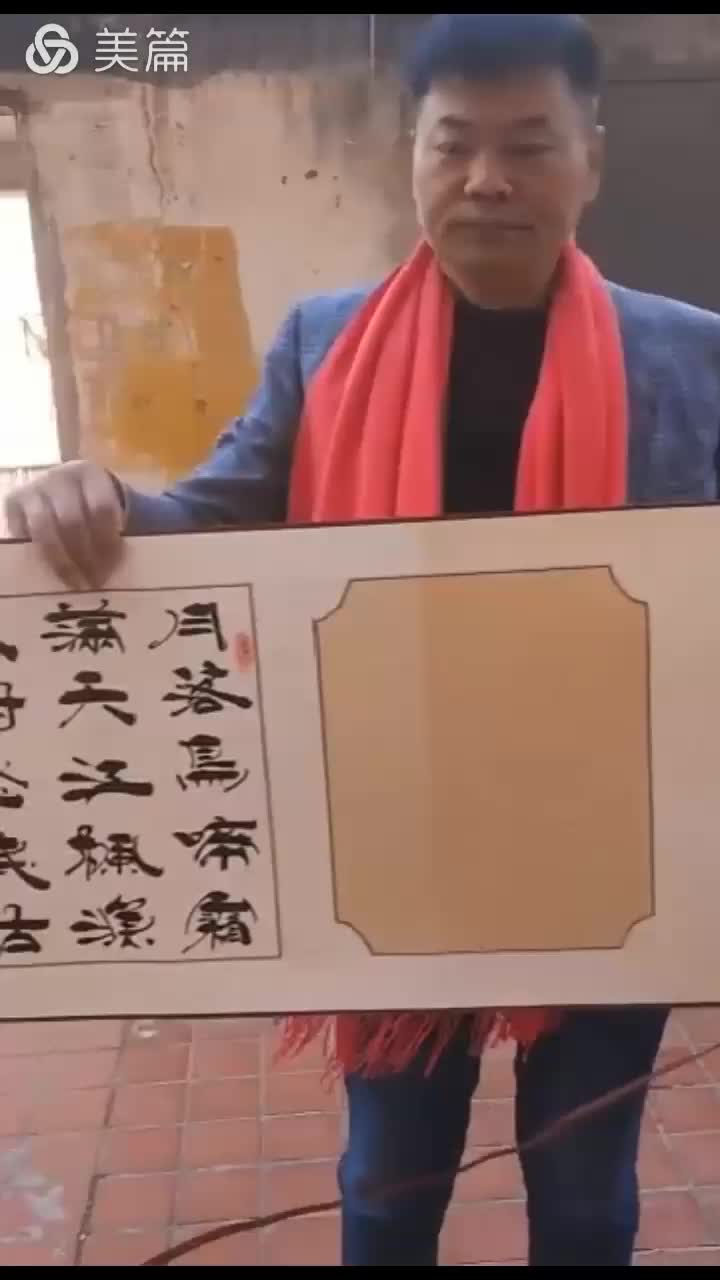 美篇
月落烏啼霜
滿天江楓漁